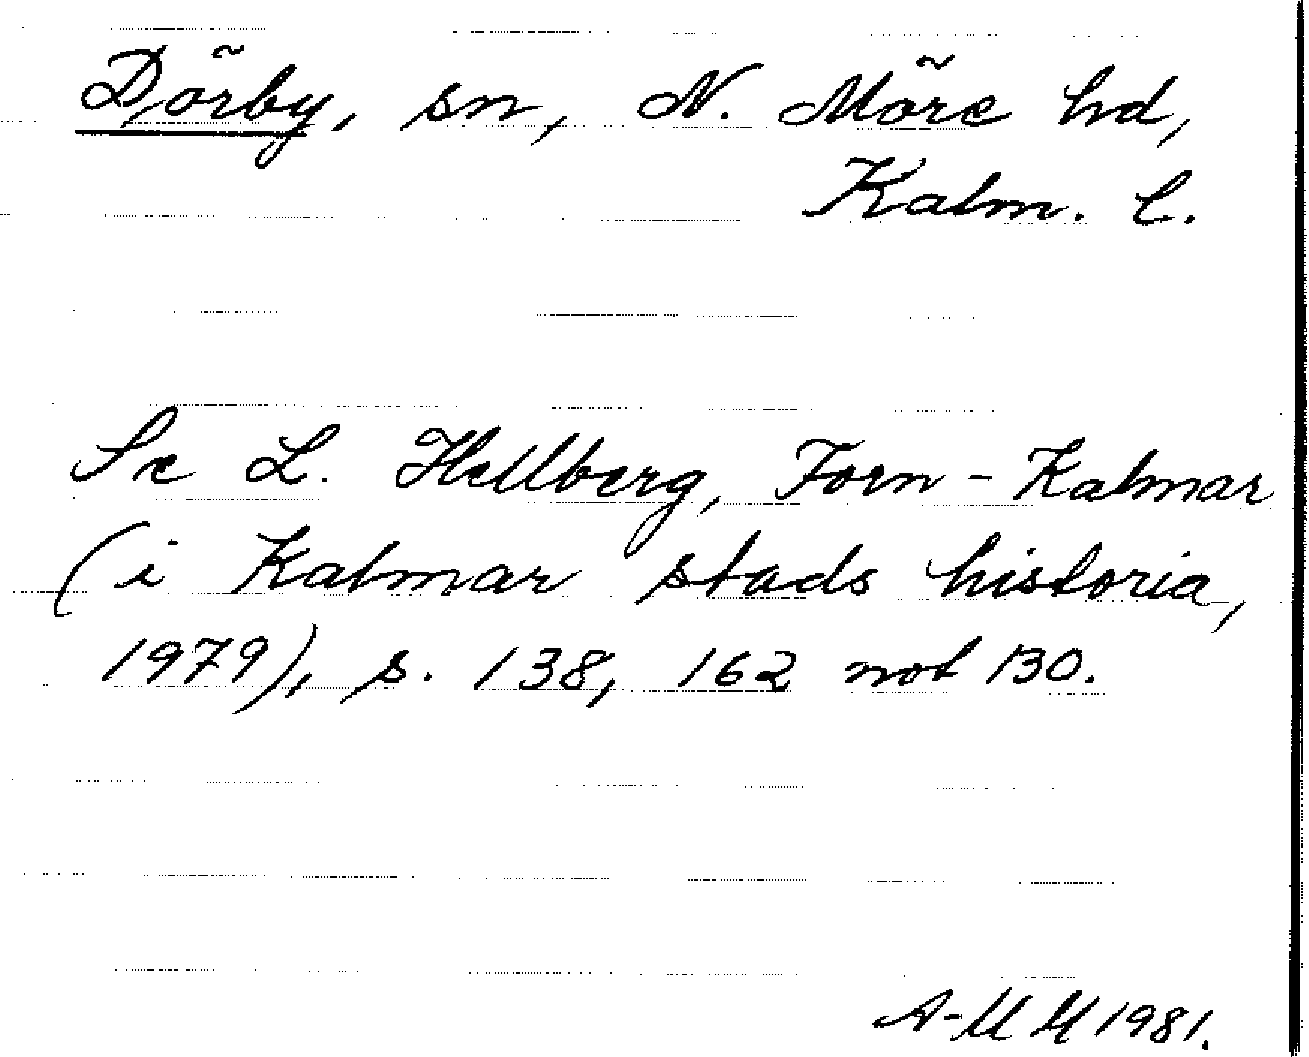 Dörby, sn, N. Möre hd,
Kalm. l.
Se L. Hellberg, Forn-Kalmar
(i Kalmar stads historia,
1979), s. 138, 162 not 130.
A-M H 1981.